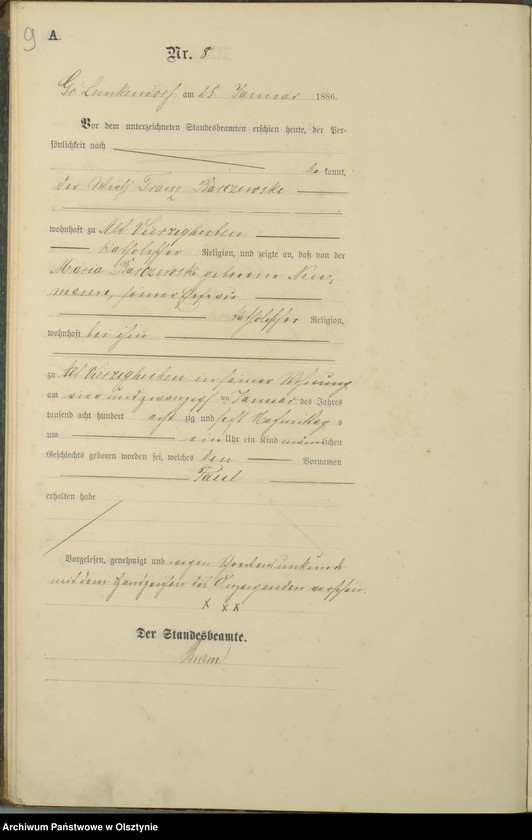 9 A.
Nr. 8.
Gr. Lemkendorf am 25 Januar 1886.
Vor dem unterzeichneten Standesbeamten erschien heute, der Per-
sönlichkeit nach
be kannt,
der Wirth Franz Barczewski
wohnhaft zu Alt Vierzighuben
katholischer Religion, und zeigte an, daß von der
Maria Barczewski geborene Neu-
mann, seiner Ehefrau
katholischer Religion,
wohnhaft bei ihm
zu Alt Vierzighuben in seiner Wohnung
am vier und zwanzigst ten Januar des Jahres
tausend acht hundert acht zig und sechs Nachmittag s
um ein Uhr ein Kind männlichen
Geschlechts geboren worden sei, welches den Vornamen
Paul
erhalten habe
Vorgelesen, genehmigt und wegen Schreibensunkunde
mit dem Handzeichen des Anzeigenden versehen.
x x x
Der Standesbeamte.
Archiwum Państwowe w Olsztynie